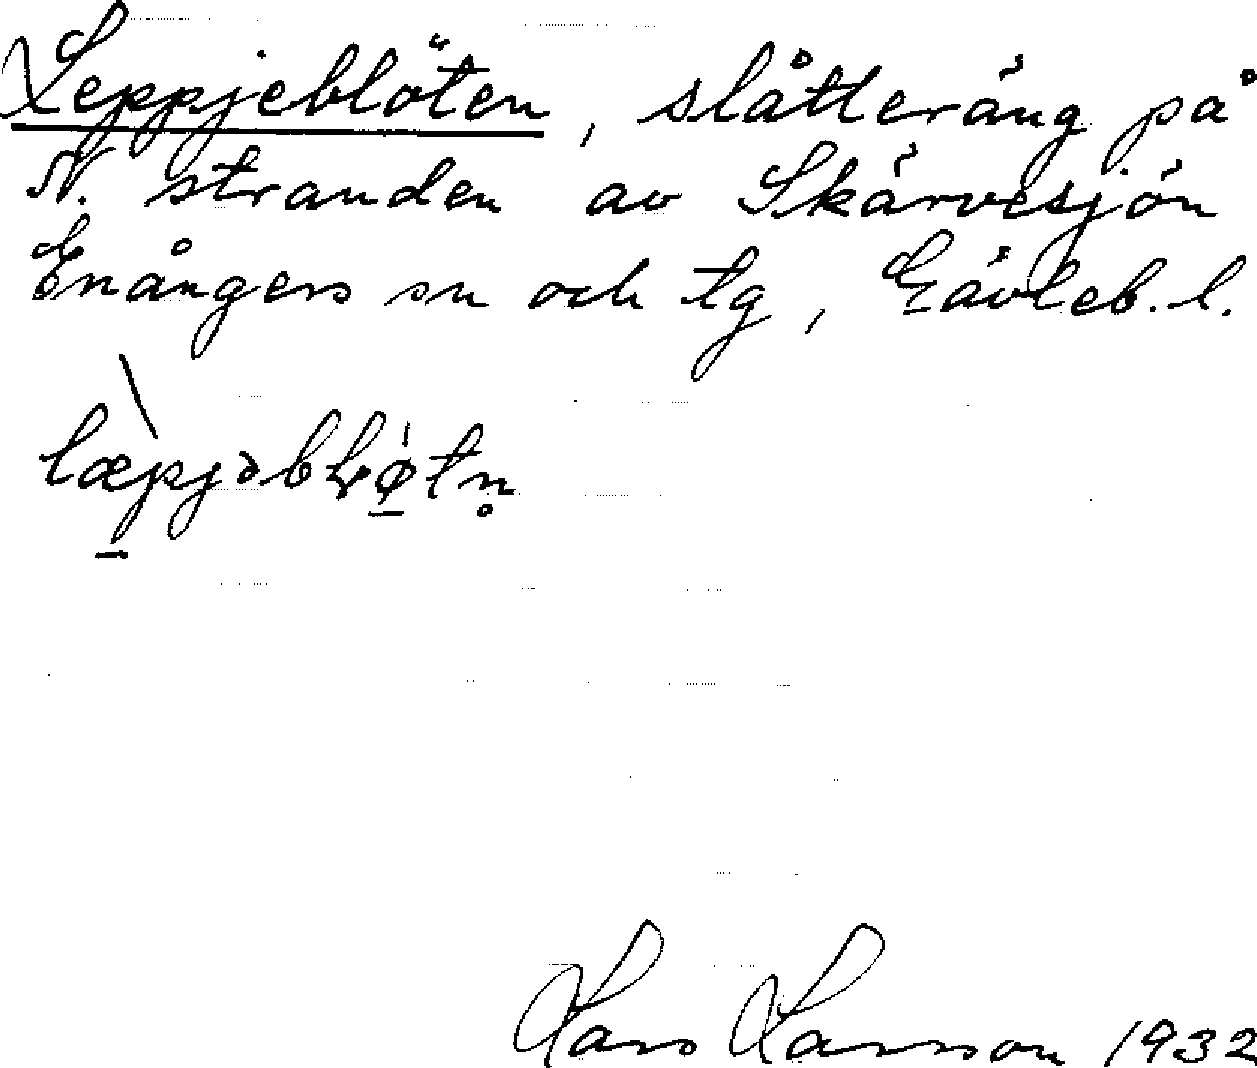 Leppjeblöten, slåtteräng på
N. stranden av Skärvesjön
Enångers sn och tg, Gävleb. l.
Lars Larsson 1932